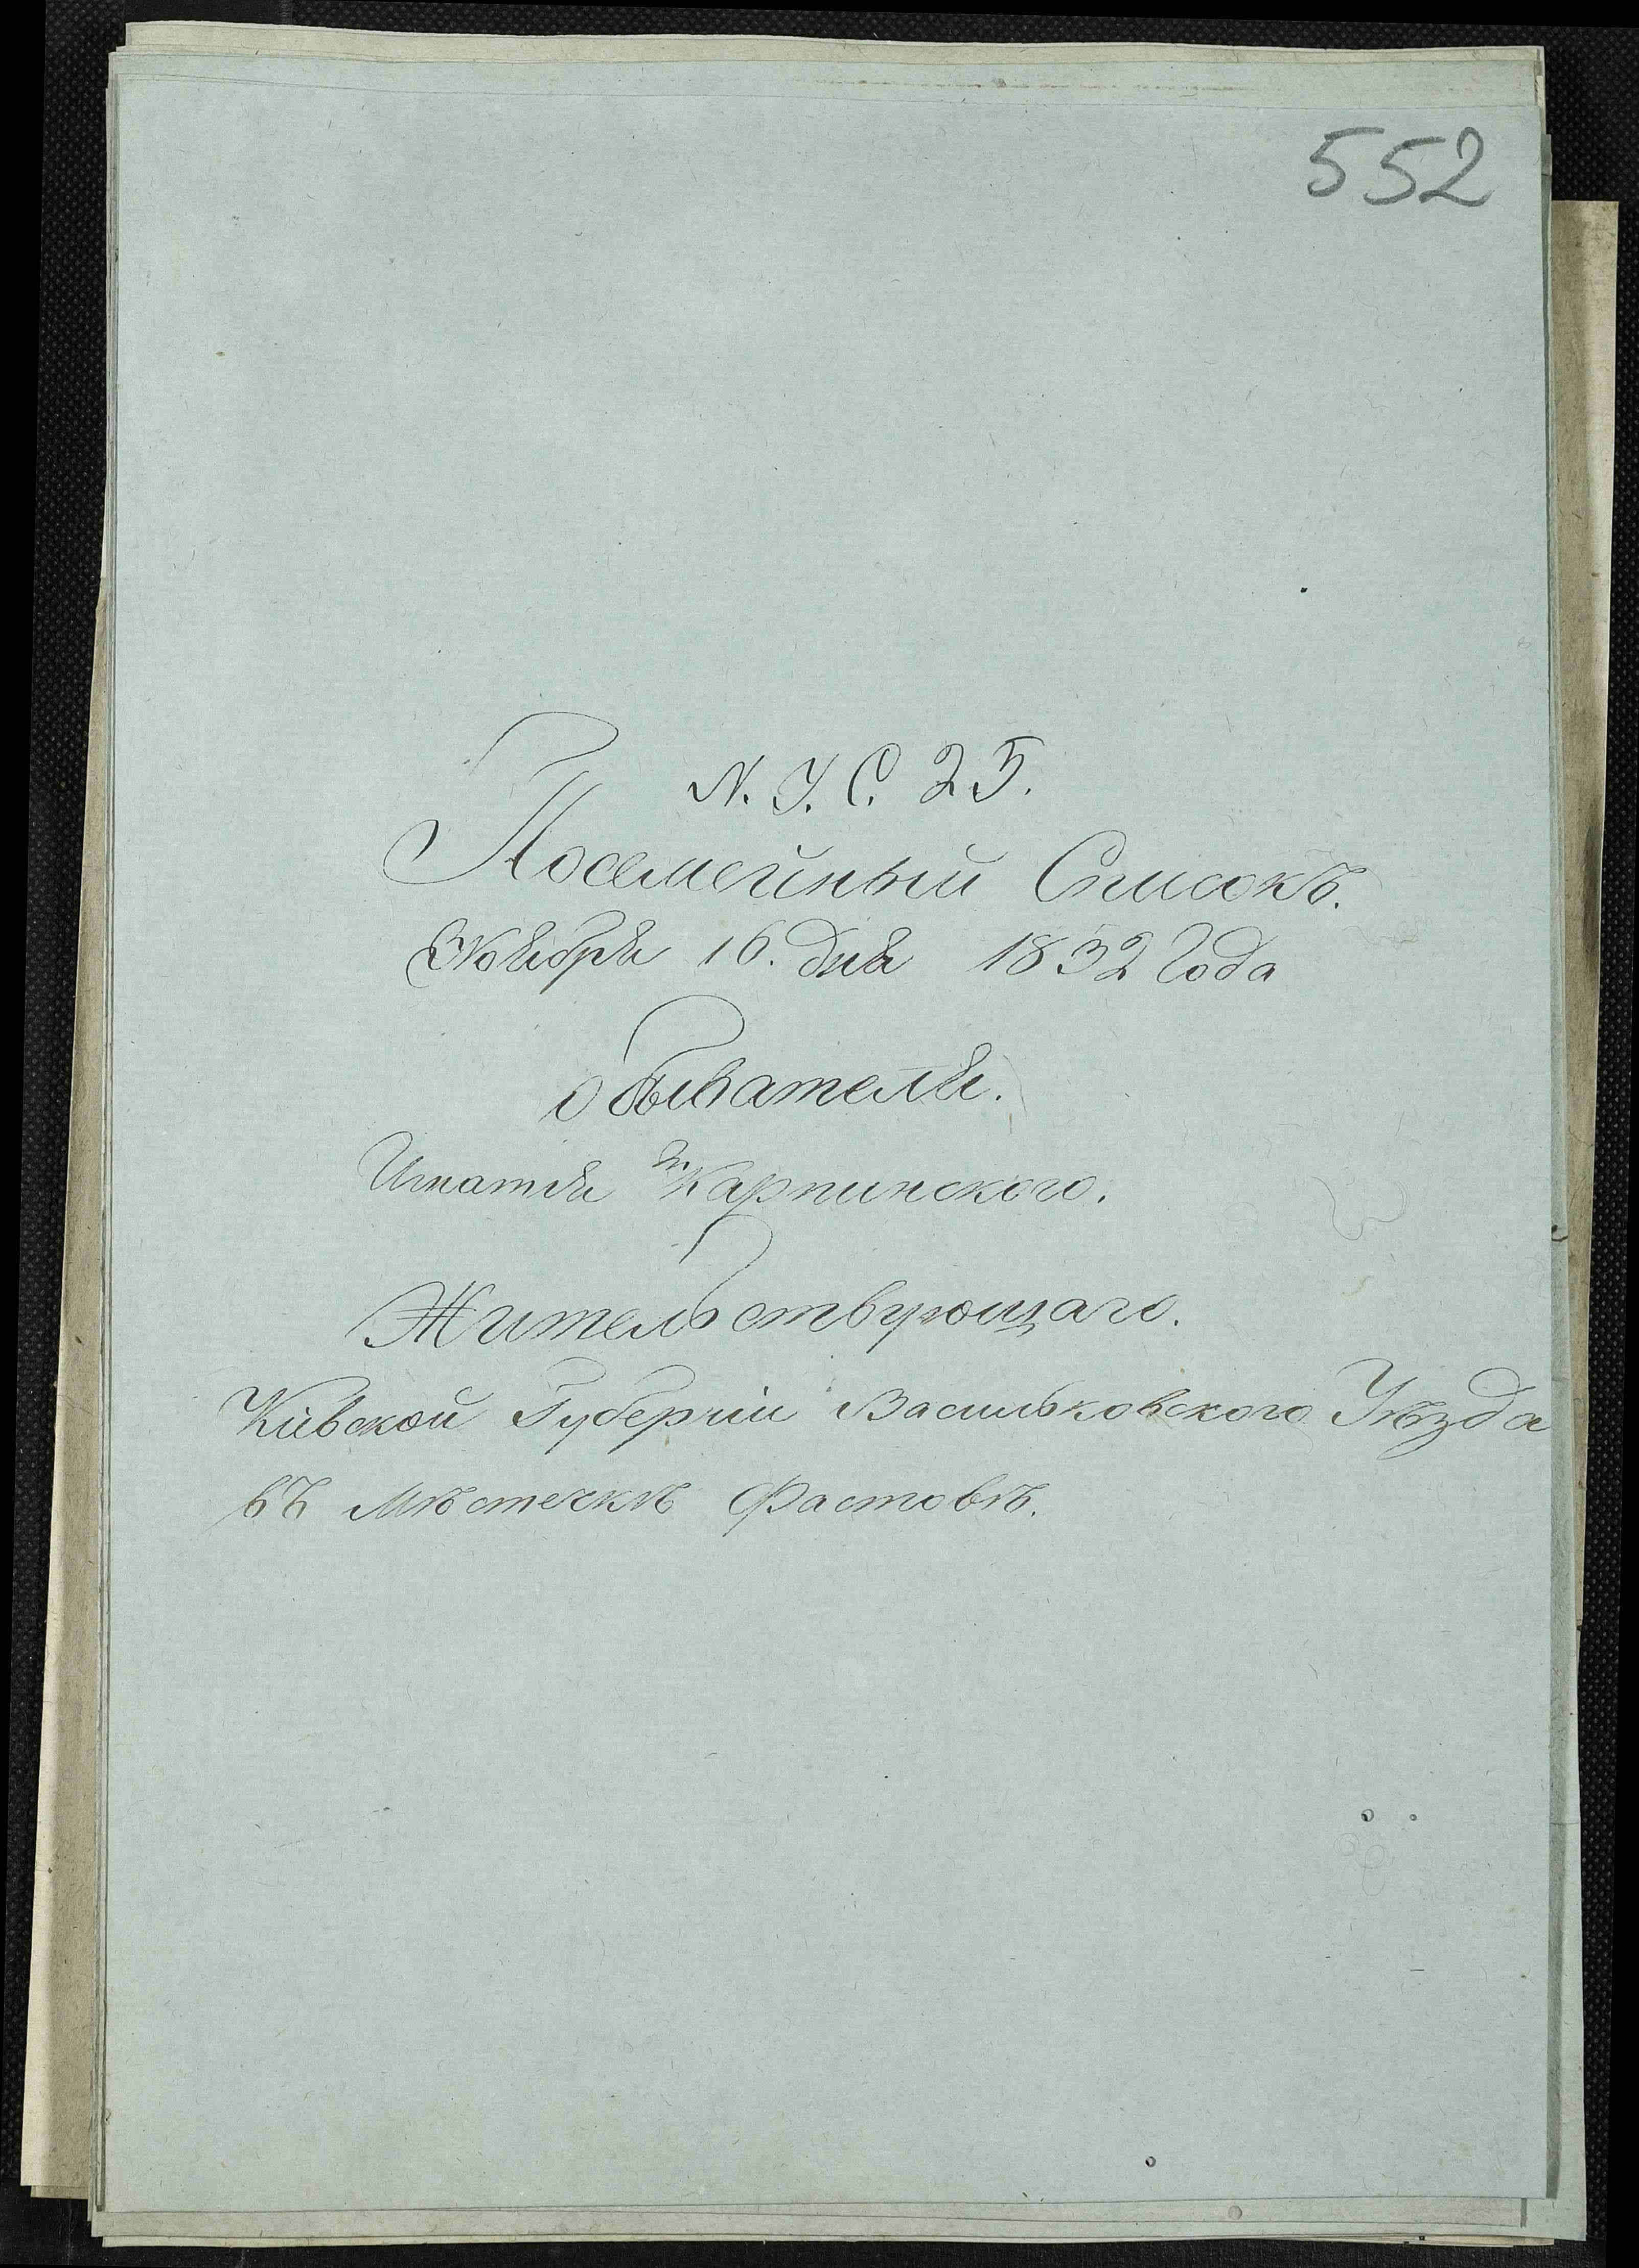 552
N. У. С. 25.
Посемейный Списокъ.
Ноября 16. дня 1832 Года
обывателя.
Игнатія Карпинского.
Жительствующаго.
Кіевской Губерніи Васильковского Уѣзда
въ Мѣстечкѣ Фастовѣ.